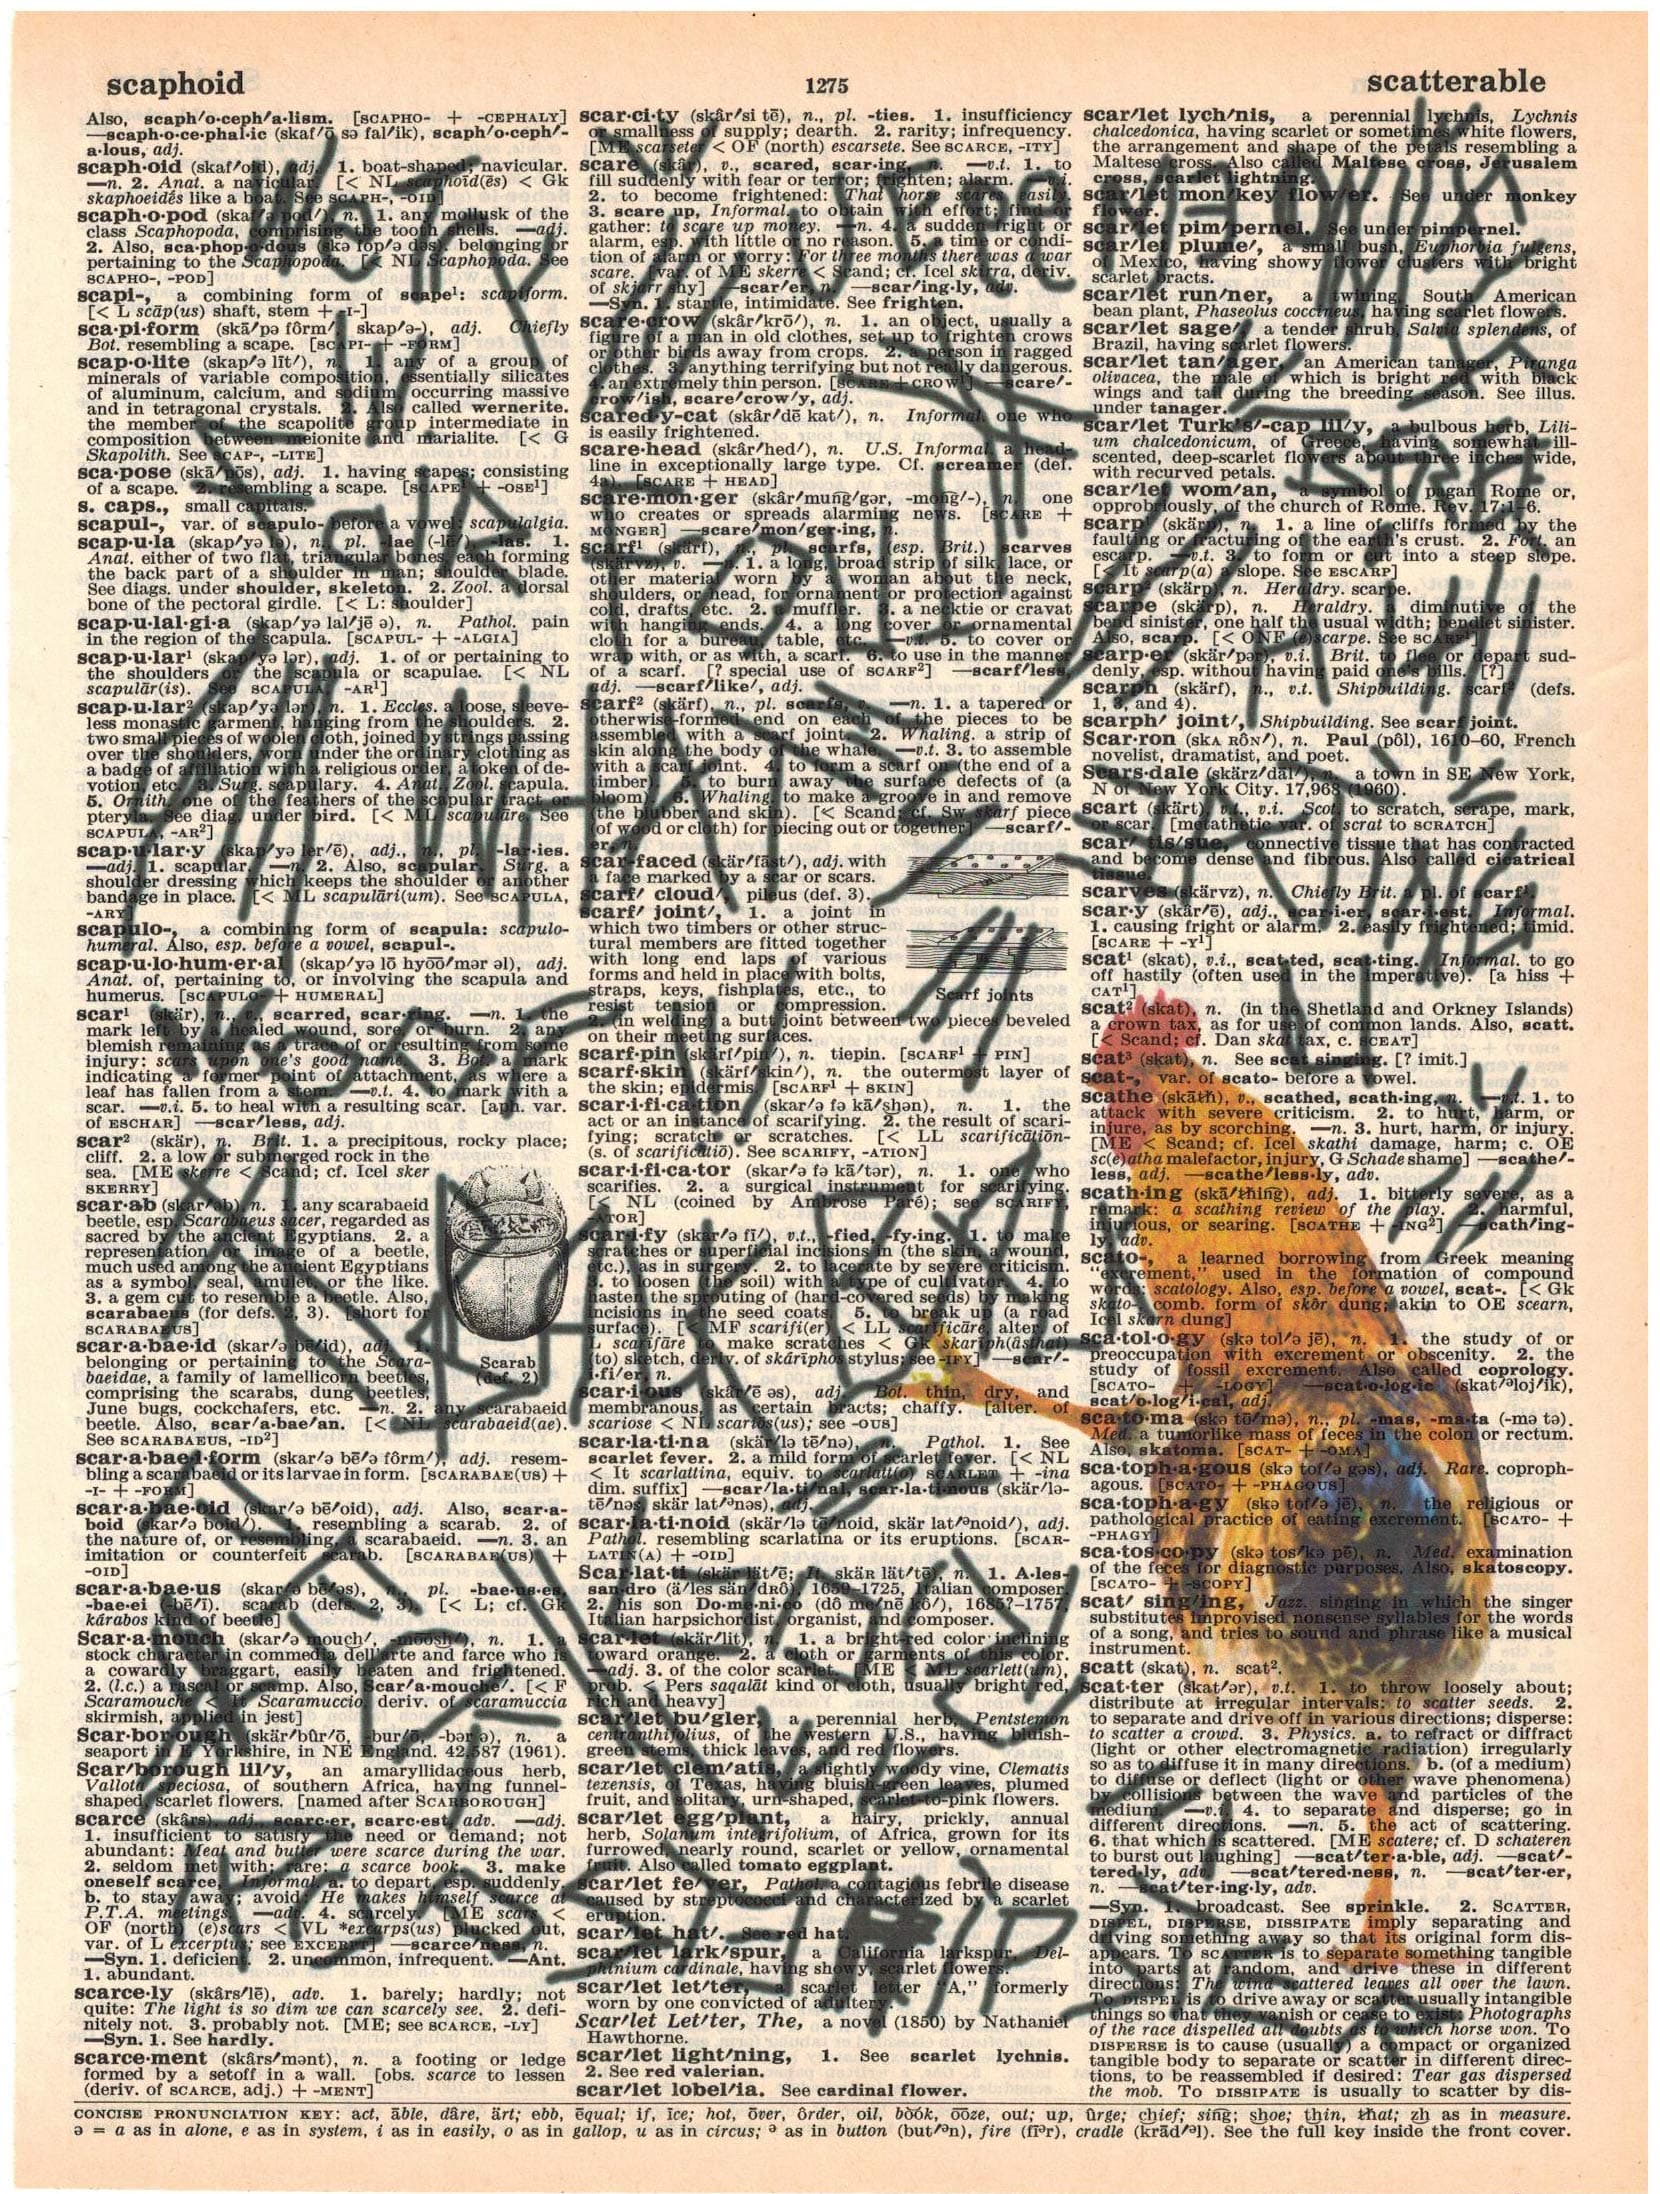 scaphoid
1275
scatterable
Also, scaph′o·ceph′a·lism. [SCAPHO- + -CEPHALY]
—scaph·o·ce·phal·ic (skaf′ō sə fal′ik), scaph′o·ceph′-
a·lous, adj.
scaph·oid (skaf′oid), adj. 1. boat-shaped; navicular.
—n. 2. Anat. a navicular. [< NL scaphoīd(ēs) < Gk
skaphoeidēs like a boat. See SCAPH-, -OID]
scaph·o·pod (skaf′ə pod′), n. 1. any mollusk of the
class Scaphopoda, comprising the tooth shells. —adj.
2. Also, sca·phop·o·dous (skə fop′ə dəs). belonging or
pertaining to the Scaphopoda. [< NL Scaphopoda. See
SCAPHO-, -POD]
scapi-, a combining form of scape¹: scapiform.
[< L scāp(us) shaft, stem + -I-]
sca·pi·form (skā′pə fôrm′, skap′ə-), adj. Chiefly
Bot. resembling a scape. [SCAPI- + -FORM]
scap·o·lite (skap′ə līt′), n. 1. any of a group of
minerals of variable composition, essentially silicates
of aluminum, calcium, and sodium, occurring massive
and in tetragonal crystals. 2. Also called wernerite.
the member of the scapolite group intermediate in
composition between meionite and marialite. [< G
Skapolith. See SCAP-, -LITE]
sca·pose (skā′pōs), adj. 1. having scapes; consisting
of a scape. 2. resembling a scape. [SCAPE¹ + -OSE¹]
s. caps., small capitals.
scapul-, var. of scapulo- before a vowel: scapulalgia.
scap·u·la (skap′yə lə), n., pl. -lae (-lē′), -las. 1.
Anat. either of two flat, triangular bones, each forming
the back part of a shoulder in man; shoulder blade.
See diags. under shoulder, skeleton. 2. Zool. a dorsal
bone of the pectoral girdle. [< L: shoulder]
scap·u·lal·gi·a (skap′yə lal′jē ə), n. Pathol. pain
in the region of the scapula. [SCAPUL- + -ALGIA]
scap·u·lar¹ (skap′yə lər), adj. 1. of or pertaining to
the shoulders or the scapula or scapulae. [< NL
scapulār(is). See SCAPULA, -AR¹]
scap·u·lar² (skap′yə lər), n. 1. Eccles. a loose, sleeve-
less monastic garment, hanging from the shoulders. 2.
two small pieces of woolen cloth, joined by strings passing
over the shoulders, worn under the ordinary clothing as
a badge of affiliation with a religious order, a token of de-
votion, etc. 3. Surg. scapulary. 4. Anat., Zool. scapula.
5. Ornith. one of the feathers of the scapular tract or
pteryla. See diag. under bird. [< ML scapulāre. See
SCAPULA, -AR²]
scap·u·lar·y (skap′yə ler′ē), adj., n., pl. -lar·ies.
—adj. 1. scapular. —n. 2. Also, scapular. Surg. a
shoulder dressing which keeps the shoulder or another
bandage in place. [< ML scapulāri(um). See SCAPULA,
-ARY]
scapulo-, a combining form of scapula: scapulo-
humeral. Also, esp. before a vowel, scapul-.
scap·u·lo·hum·er·al (skap′yə lō hyo͞o′mər əl), adj.
Anat. of, pertaining to, or involving the scapula and
humerus. [SCAPULO- + HUMERAL]
scar¹ (skär), n., v., scarred, scar·ring. —n. 1. the
mark left by a healed wound, sore, or burn. 2. any
blemish remaining as a trace of or resulting from some
injury: scars upon one's good name. 3. Bot. a mark
indicating a former point of attachment, as where a
leaf has fallen from a stem. —v.t. 4. to mark with a
scar. —v.i. 5. to heal with a resulting scar. [aph. var.
of ESCHAR] —scar′less, adj.
scar² (skär), n. Brit. 1. a precipitous, rocky place;
cliff. 2. a low or submerged rock in the
sea. [ME skerre < Scand; cf. Icel sker
SKERRY]
scar·ab (skar′əb) n. 1. any scarabaeid
beetle, esp. Scarabaeus sacer, regarded as
sacred by the ancient Egyptians. 2. a
representation or image of a beetle,
much used among the ancient Egyptians
as a symbol, seal, amulet, or the like.
3. a gem cut to resemble a beetle. Also,
scarabaeus (for defs. 2, 3). [short for
SCARABAEUS]
Scarab
(def. 2)
scar·a·bae·id (skar′ə bē′id), adj. 1.
belonging or pertaining to the Scara-
baeidae, a family of lamellicorn beetles,
comprising the scarabs, dung beetles,
June bugs, cockchafers, etc. —n. 2. any scarabaeid
beetle. Also, scar′a·bae′an. [< NL scarabaeid(ae).
See SCARABAEUS, -ID²]
scar·a·bae·i·form (skar′ə bē′ə fôrm′), adj. resem-
bling a scarabaeid or its larvae in form. [SCARABAE(US) +
-I- + -FORM]
scar·a·bae·oid (skar′ə bē′oid), adj. Also, scar·a-
boid (skar′ə boid′). 1. resembling a scarab. 2. of
the nature of, or resembling, a scarabaeid. —n. 3. an
imitation or counterfeit scarab. [SCARABAE(US) +
-OID]
scar·a·bae·us (skar′ə bē′əs), n., pl. -bae·us·es,
-bae·ei (-bē′ī). scarab (defs. 2, 3). [< L; cf. Gk
kárabos kind of beetle]
Scar·a·mouch (skar′ə mouch′, -mo͞osh′), n. 1. a
stock character in commedia dell'arte and farce who is
a cowardly braggart, easily beaten and frightened.
2. (l.c.) a rascal or scamp. Also, Scar′a·mouche′. [< F
Scaramouche < It Scaramuccio, deriv. of scaramuccia
skirmish, applied in jest]
Scar·bor·ough (skär′bûr′ō, -bur′ō, -bər ə), n. a
seaport in E Yorkshire, in NE England. 42,587 (1961).
Scar′borough lil′y, an amaryllidaceous herb,
Vallota speciosa, of southern Africa, having funnel-
shaped, scarlet flowers. [named after SCARBOROUGH]
scarce (skârs) adj., scarc·er, scarc·est, adv. —adj.
1. insufficient to satisfy the need or demand; not
abundant: Meat and butter were scarce during the war.
2. seldom met with; rare: a scarce book. 3. make
oneself scarce, Informal. a. to depart, esp. suddenly.
b. to stay away; avoid: He makes himself scarce at
P.T.A. meetings. —adv. 4. scarcely. [ME scars <
OF (north) (e)scars < VL *excarps(us) plucked out,
var. of L excerptus; see EXCERPT] —scarce′ness, n.
—Syn. 1. deficient. 2. uncommon, infrequent. —Ant.
1. abundant.
scarce·ly (skârs′lē), adv. 1. barely; hardly; not
quite: The light is so dim we can scarcely see. 2. defi-
nitely not. 3. probably not. [ME; see SCARCE, -LY]
—Syn. 1. See hardly.
scarce·ment (skârs′mənt), n. a footing or ledge
formed by a setoff in a wall. [obs. scarce to lessen
(deriv. of SCARCE, adj.) + -MENT]
scar·ci·ty (skâr′si tē), n., pl. -ties. 1. insufficiency
or smallness of supply; dearth. 2. rarity; infrequency.
[ME scarsete < OF (north) escarsete. See SCARCE, -ITY]
scare (skâr), v., scared, scar·ing, n. —v.t. 1. to
fill suddenly with fear or terror; frighten; alarm. —v.i.
2. to become frightened: That horse scares easily.
3. scare up, Informal. to obtain with effort; find or
gather: to scare up money. —n. 4. a sudden fright or
alarm, esp. with little or no reason. 5. a time or condi-
tion of alarm or worry: For three months there was a war
scare. [var. of ME skerre < Scand; cf. Icel skirra, deriv.
of skjarr shy] —scar′er, n. —scar′ing·ly, adv.
—Syn. 1. startle, intimidate. See frighten.
scare·crow (skâr′krō′), n. 1. an object, usually a
figure of a man in old clothes, set up to frighten crows
or other birds away from crops. 2. a person in ragged
clothes. 3. anything terrifying but not really dangerous.
4. an extremely thin person. [SCARE + CROW¹] —scare′-
crow′ish, scare′crow′y, adj.
scared·y-cat (skâr′dē kat′), n. Informal. one who
is easily frightened.
scare·head (skâr′hed′), n. U.S. Informal. a head-
line in exceptionally large type. Cf. screamer (def.
4a). [SCARE + HEAD]
scare·mon·ger (skâr′muŋg′gər, -moŋg′-), n. one
who creates or spreads alarming news. [SCARE +
MONGER] —scare′mon′ger·ing, n.
scarf¹ (skärf), n., pl. scarfs, (esp. Brit.) scarves
(skärvz), v. —n. 1. a long, broad strip of silk, lace, or
other material worn by a woman about the neck,
shoulders, or head, for ornament or protection against
cold, drafts, etc. 2. a muffler. 3. a necktie or cravat
with hanging ends. 4. a long cover or ornamental
cloth for a bureau, table, etc. —v.t. 5. to cover or
wrap with, or as with, a scarf. 6. to use in the manner
of a scarf. [? special use of SCARF²] —scarf′less,
adj. —scarf′like′, adj.
scarf² (skärf), n., pl. scarfs, v. —n. 1. a tapered or
otherwise-formed end on each of the pieces to be
assembled with a scarf joint. 2. Whaling. a strip of
skin along the body of the whale. —v.t. 3. to assemble
with a scarf joint. 4. to form a scarf on (the end of a
timber). 5. to burn away the surface defects of (a
bloom). 6. Whaling. to make a groove in and remove
(the blubber and skin). [< Scand; cf. Sw skarf piece
(of wood or cloth) for piecing out or together] —scarf′-
er, n.
scar-faced (skär′fāst′), adj. with
a face marked by a scar or scars.
scarf′ cloud′, pileus (def. 3).
scarf′ joint′, 1. a joint in
which two timbers or other struc-
tural members are fitted together
with long end laps of various
forms and held in place with bolts,
straps, keys, fishplates, etc., to
resist tension or compression.
Scarf joints
2. (in welding) a butt joint between two pieces beveled
on their meeting surfaces.
scarf·pin (skärf′pin′), n. tiepin. [SCARF¹ + PIN]
scarf·skin (skärf′skin′), n. the outermost layer of
the skin; epidermis. [SCARF¹ + SKIN]
scar·i·fi·ca·tion (skar′ə fə kā′shən), n. 1. the
act or an instance of scarifying. 2. the result of scari-
fying; scratch or scratches. [< LL scarificātiōn-
(s. of scarificātiō). See SCARIFY, -ATION]
scar·i·fi·ca·tor (skar′ə fə kā′tər), n. 1. one who
scarifies. 2. a surgical instrument for scarifying.
[< NL (coined by Ambrose Paré); see SCARIFY,
-ATOR]
scar·i·fy (skar′ə fī′), v.t., -fied, -fy·ing. 1. to make
scratches or superficial incisions in (the skin, a wound,
etc.), as in surgery. 2. to lacerate by severe criticism.
3. to loosen (the soil) with a type of cultivator. 4. to
hasten the sprouting of (hard-covered seeds) by making
incisions in the seed coats. 5. to break up (a road
surface). [< MF scarifi(er) < LL scarificāre, alter. of
L scarīfāre to make scratches < Gk skarīph(âsthai)
(to) sketch, deriv. of skárīphos stylus; see -IFY] —scar′-
i·fi′er, n.
scar·i·ous (skâr′ē əs), adj. Bot. thin, dry, and
membranous, as certain bracts; chaffy. [alter. of
scariose < NL scariōs(us); see -OUS]
scar·la·ti·na (skär′lə tē′nə), n. Pathol. 1. See
scarlet fever. 2. a mild form of scarlet fever. [< NL
< It scarlattina, equiv. to scarlatt(o) SCARLET + -ina
dim. suffix] —scar′la·ti′nal, scar·la·ti·nous (skär′lə-
tē′nəs, skär lat′ᵊnəs), adj.
scar·la·ti·noid (skär′lə tē′noid, skär lat′ᵊnoid′), adj.
Pathol. resembling scarlatina or its eruptions. [SCAR-
LATIN(A) + -OID]
Scar·lat·ti (skär lät′ē; It. skär lät′tē), n. 1. A·les-
san·dro (ä′les sän′drô), 1659–1725, Italian composer.
2. his son Do·me·ni·co (dô me′nē kô′), 1685?–1757,
Italian harpsichordist, organist, and composer.
scar·let (skär′lit), n. 1. a bright-red color inclining
toward orange. 2. a cloth or garments of this color.
—adj. 3. of the color scarlet. [ME < ML scarlett(um),
prob. < Pers saqalāt kind of cloth, usually bright red,
rich and heavy]
scar′let bu′gler, a perennial herb, Pentstemon
centranthifolius, of the western U.S., having bluish-
green stems, thick leaves, and red flowers.
scar′let clem′atis, a slightly woody vine, Clematis
texensis, of Texas, having bluish-green leaves, plumed
fruit, and solitary, urn-shaped, scarlet-to-pink flowers.
scar′let egg′plant, a hairy, prickly, annual
herb, Solanum integrifolium, of Africa, grown for its
furrowed, nearly round, scarlet or yellow, ornamental
fruit. Also called tomato eggplant.
scar′let fe′ver, Pathol. a contagious febrile disease
caused by streptococci and characterized by a scarlet
eruption.
scar′let hat′. See red hat.
scar′let lark′spur, a California larkspur, Del-
phinium cardinale, having showy, scarlet flowers.
scar′let let′ter, a scarlet letter “A,” formerly
worn by one convicted of adultery.
Scar′let Let′ter, The, a novel (1850) by Nathaniel
Hawthorne.
scar′let light′ning, 1. See scarlet lychnis.
2. See red valerian.
scar′let lobel′ia. See cardinal flower.
scar′let lych′nis, a perennial lychnis, Lychnis
chalcedonica, having scarlet or sometimes white flowers,
the arrangement and shape of the petals resembling a
Maltese cross. Also called Maltese cross, Jerusalem
cross, scarlet lightning.
scar′let mon′key flow′er. See under monkey
flower.
scar′let pim′pernel. See under pimpernel.
scar′let plume′, a small bush, Euphorbia fulgens,
of Mexico, having showy flower clusters with bright
scarlet bracts.
scar′let run′ner, a twining, South American
bean plant, Phaseolus coccineus, having scarlet flowers.
scar′let sage′, a tender shrub, Salvia splendens, of
Brazil, having scarlet flowers.
scar′let tan′ager, an American tanager, Piranga
olivacea, the male of which is bright red with black
wings and tail during the breeding season. See illus.
under tanager.
scar′let Turk's′-cap lil′y, a bulbous herb, Lili-
um chalcedonicum, of Greece, having somewhat ill-
scented, deep-scarlet flowers about three inches wide,
with recurved petals.
scar′let wom′an, a symbol of pagan Rome or,
opprobriously, of the church of Rome. Rev. 17:1–6.
scarp (skärp), n. 1. a line of cliffs formed by the
faulting or fracturing of the earth's crust. 2. Fort. an
escarp. —v.t. 3. to form or cut into a steep slope.
[< It scarp(a) a slope. See ESCARP]
scarp² (skärp), n. Heraldry. scarpe.
scarpe (skärp), n. Heraldry. a diminutive of the
bend sinister, one half the usual width; bendlet sinister.
Also, scarp. [< ONF (e)scarpe. See SCARF¹]
scarp·er (skär′pər), v.i. Brit. to flee or depart sud-
denly, esp. without having paid one's bills. [?]
scarph (skärf), n., v.t. Shipbuilding. scarf² (defs.
1, 3, and 4).
scarph′ joint′, Shipbuilding. See scarf joint.
Scar·ron (skA RÔN′), n. Paul (pôl), 1610–60, French
novelist, dramatist, and poet.
Scars·dale (skärz′dāl′), n. a town in SE New York,
N of New York City. 17,968 (1960).
scart (skärt), v.t., v.i. Scot. to scratch, scrape, mark,
or scar. [metathetic var. of scrat to SCRATCH]
scar′ tis′sue, connective tissue that has contracted
and become dense and fibrous. Also called cicatrical
tissue.
scarves (skärvz), n. Chiefly Brit. a pl. of scarf¹.
scar·y (skâr′ē), adj., scar·i·er, scar·i·est. Informal.
1. causing fright or alarm. 2. easily frightened; timid.
[SCARE + -Y¹]
scat¹ (skat), v.i., scat·ted, scat·ting. Informal. to go
off hastily (often used in the imperative). [a hiss +
CAT¹]
scat² (skat), n. (in the Shetland and Orkney Islands)
a crown tax, as for use of common lands. Also, scatt.
[< Scand; cf. Dan skat tax, c. SCEAT]
scat³ (skat), n. See scat singing. [? imit.]
scat-, var. of scato- before a vowel.
scathe (skāth), v., scathed, scath·ing, n. —v.t. 1. to
attack with severe criticism. 2. to hurt, harm, or
injure, as by scorching. —n. 3. hurt, harm, or injury.
[ME < Scand; cf. Icel skathi damage, harm; c. OE
sc(e)atha malefactor, injury, G Schade shame] —scathe′-
less, adj. —scathe′less·ly, adv.
scath·ing (skā′thing), adj. 1. bitterly severe, as a
remark: a scathing review of the play. 2. harmful,
injurious, or searing. [SCATHE + -ING²] —scath′ing-
ly, adv.
scato-, a learned borrowing from Greek meaning
“excrement,” used in the formation of compound
words: scatology. Also, esp. before a vowel, scat-. [< Gk
skato-, comb. form of skôr dung; akin to OE scearn,
Icel skarn dung]
sca·tol·o·gy (skə tol′ə jē), n. 1. the study of or
preoccupation with excrement or obscenity. 2. the
study of fossil excrement. Also called coprology.
[SCATO- + -LOGY] —scat·o·log·ic (skat′ᵊloj′ik),
scat′o·log′i·cal, adj.
sca·to·ma (skə tō′mə), n., pl. -mas, -ma·ta (-mə tə).
Med. a tumorlike mass of feces in the colon or rectum.
Also, skatoma. [SCAT- + -OMA]
sca·toph·a·gous (skə tof′ə gəs), adj. Rare. coproph-
agous. [SCATO- + -PHAGOUS]
sca·toph·a·gy (skə tof′ə jē), n. the religious or
pathological practice of eating excrement. [SCATO- +
-PHAGY]
sca·tos·co·py (skə tos′kə pē), n. Med. examination
of the feces for diagnostic purposes. Also, skatoscopy.
[SCATO- + -SCOPY]
scat′ sing′ing, Jazz. singing in which the singer
substitutes improvised nonsense syllables for the words
of a song, and tries to sound and phrase like a musical
instrument.
scatt (skat), n. scat².
scat·ter (skat′ər), v.t. 1. to throw loosely about;
distribute at irregular intervals: to scatter seeds. 2.
to separate and drive off in various directions; disperse:
to scatter a crowd. 3. Physics. a. to refract or diffract
(light or other electromagnetic radiation) irregularly
so as to diffuse it in many directions. b. (of a medium)
to diffuse or deflect (light or other wave phenomena)
by collisions between the wave and particles of the
medium. —v.i. 4. to separate and disperse; go in
different directions. —n. 5. the act of scattering.
6. that which is scattered. [ME scatere; cf. D schateren
to burst out laughing] —scat′ter·a·ble, adj. —scat′-
tered·ly, adv. —scat′tered·ness, n. —scat′ter·er,
n. —scat′ter·ing·ly, adv.
—Syn. 1. broadcast. See sprinkle. 2. SCATTER,
DISPEL, DISPERSE, DISSIPATE imply separating and
driving something away so that its original form dis-
appears. To SCATTER is to separate something tangible
into parts at random, and drive these in different
directions: The wind scattered leaves all over the lawn.
To DISPEL is to drive away or scatter usually intangible
things so that they vanish or cease to exist: Photographs
of the race dispelled all doubts as to which horse won. To
DISPERSE is to cause (usually) a compact or organized
tangible body to separate or scatter in different direc-
tions, to be reassembled if desired: Tear gas dispersed
the mob. To DISSIPATE is usually to scatter by dis-
CONCISE PRONUNCIATION KEY: act, āble, dâre, ärt; ebb, ēqual; if, īce; hot, ōver, ôrder, oil, bo͝ok, o͞oze, out; up, ûrge; chief; sing; shoe; thin, that; zh as in measure.
ə = a as in alone, e as in system, i as in easily, o as in gallop, u as in circus; ᵊ as in button (but′ᵊn), fire (fīᵊr), cradle (krād′ᵊl). See the full key inside the front cover.